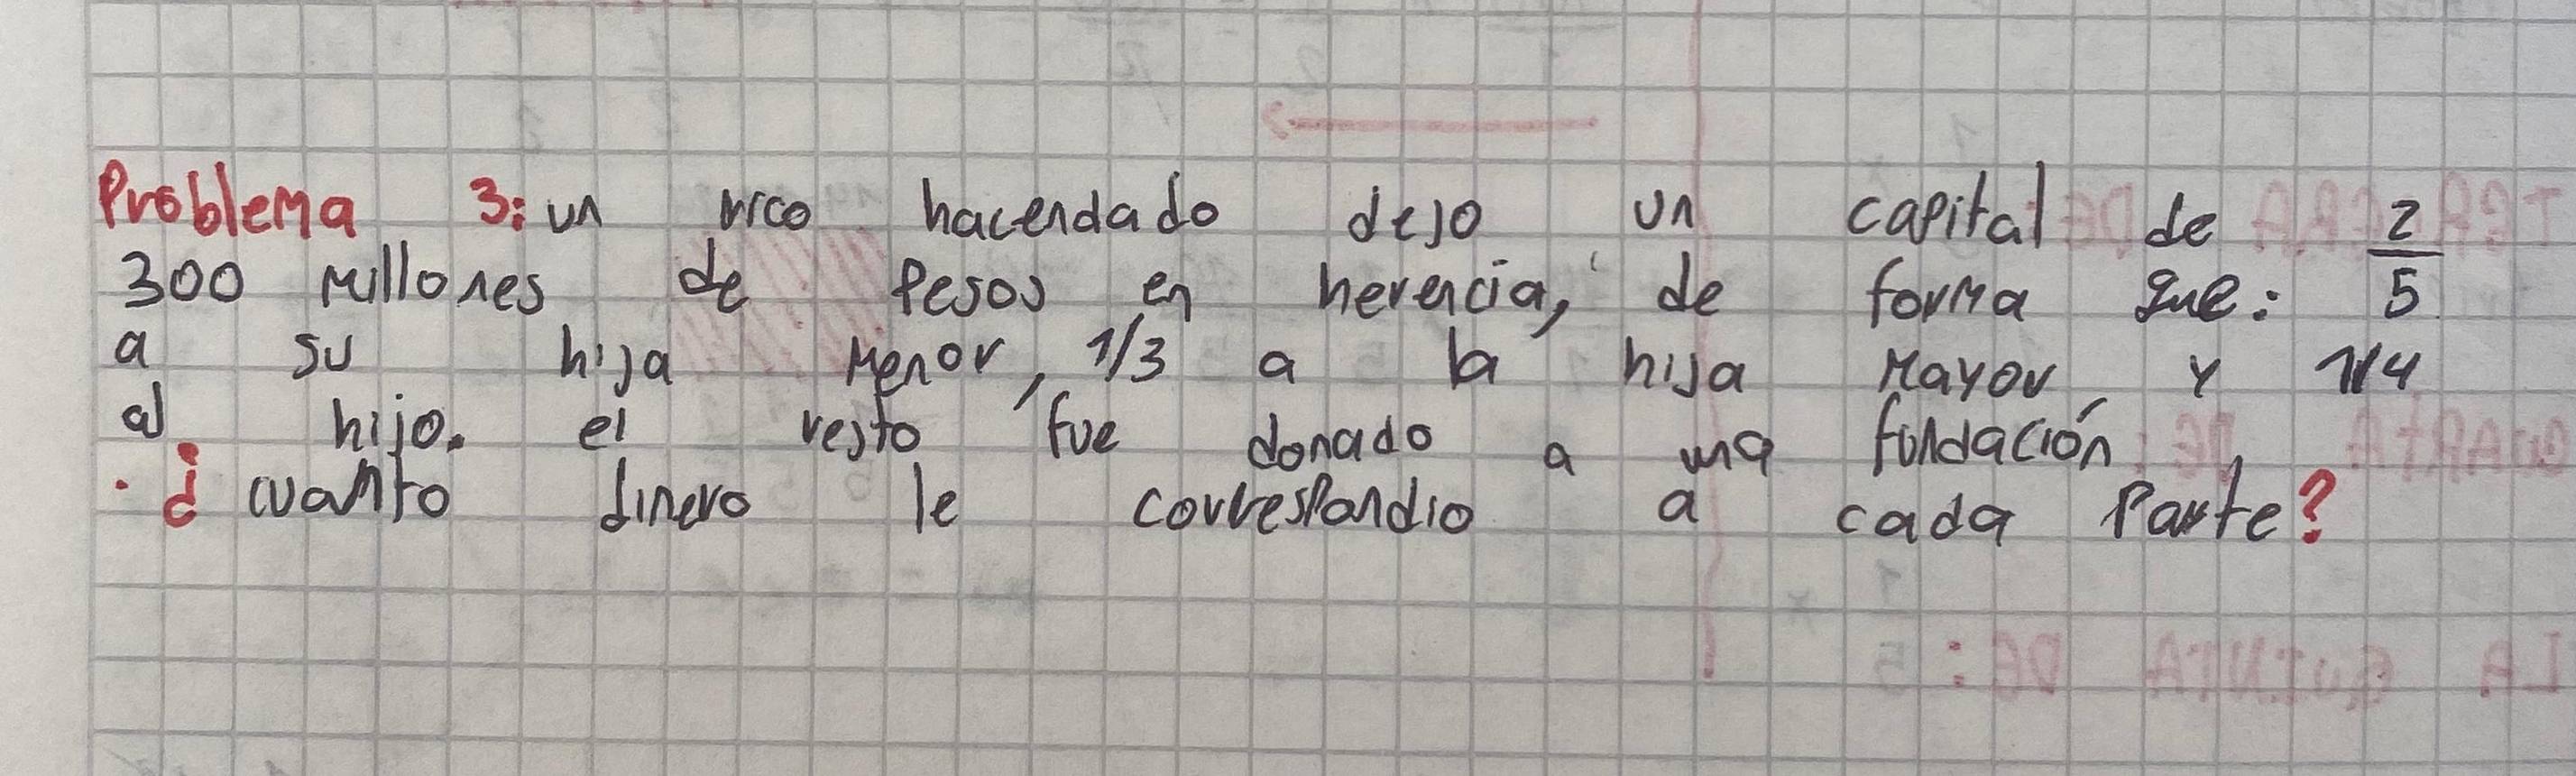 Problema 3: un rico hacendado dejo un capital de
300 Millones de Pesos en herencia, de forma que: 2/5
a su hija Menor, 1/3 a la hija Mayor, y 1/4
al hijo. el resto fue donado a una fundación
. ¿ cuanto dinero le correspondio a cada Parte?
LA QUINTA DE: 5